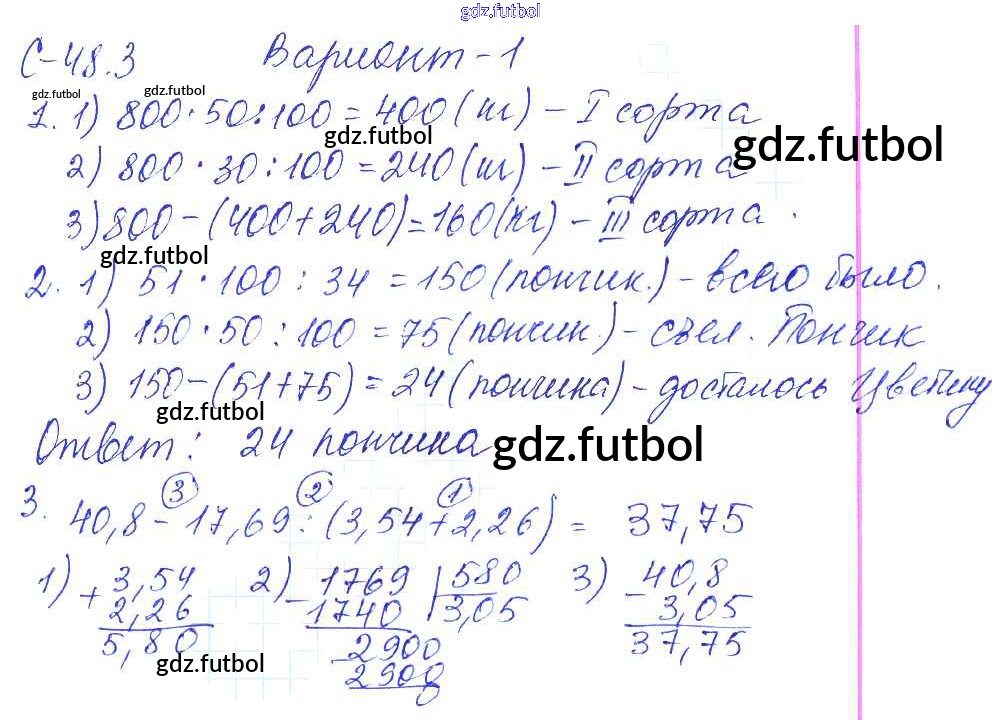 gdz.futbol
С-48.3 Вариант-1
gdz.futbol gdz.futbol
1. 1) 800·50:100=400(кг) – I сорта
gdz.futbol gdz.futbol
2) 800·30:100=240(кг) – II сорта
3) 800-(400+240)=160(кг) – III сорта.
gdz.futbol
2. 1) 51·100:34=150(пончик.) – всего было.
2) 150·50:100=75(пончик.) – съел. Пончик
3) 150-(51+75)=24(пончика) – досталось Цветику
gdz.futbol
Ответ: 24 пончика
gdz.futbol
3 2 1
3. 40,8-17,69:(3,54+2,26)= 37,75
1) + 3,54 2) - 1769 | 580 3) - 40,8
2,26 1740 3,05 3,05
5,80 - 2900 37,75
gdz.futbol 2900
gdz.futbol 0